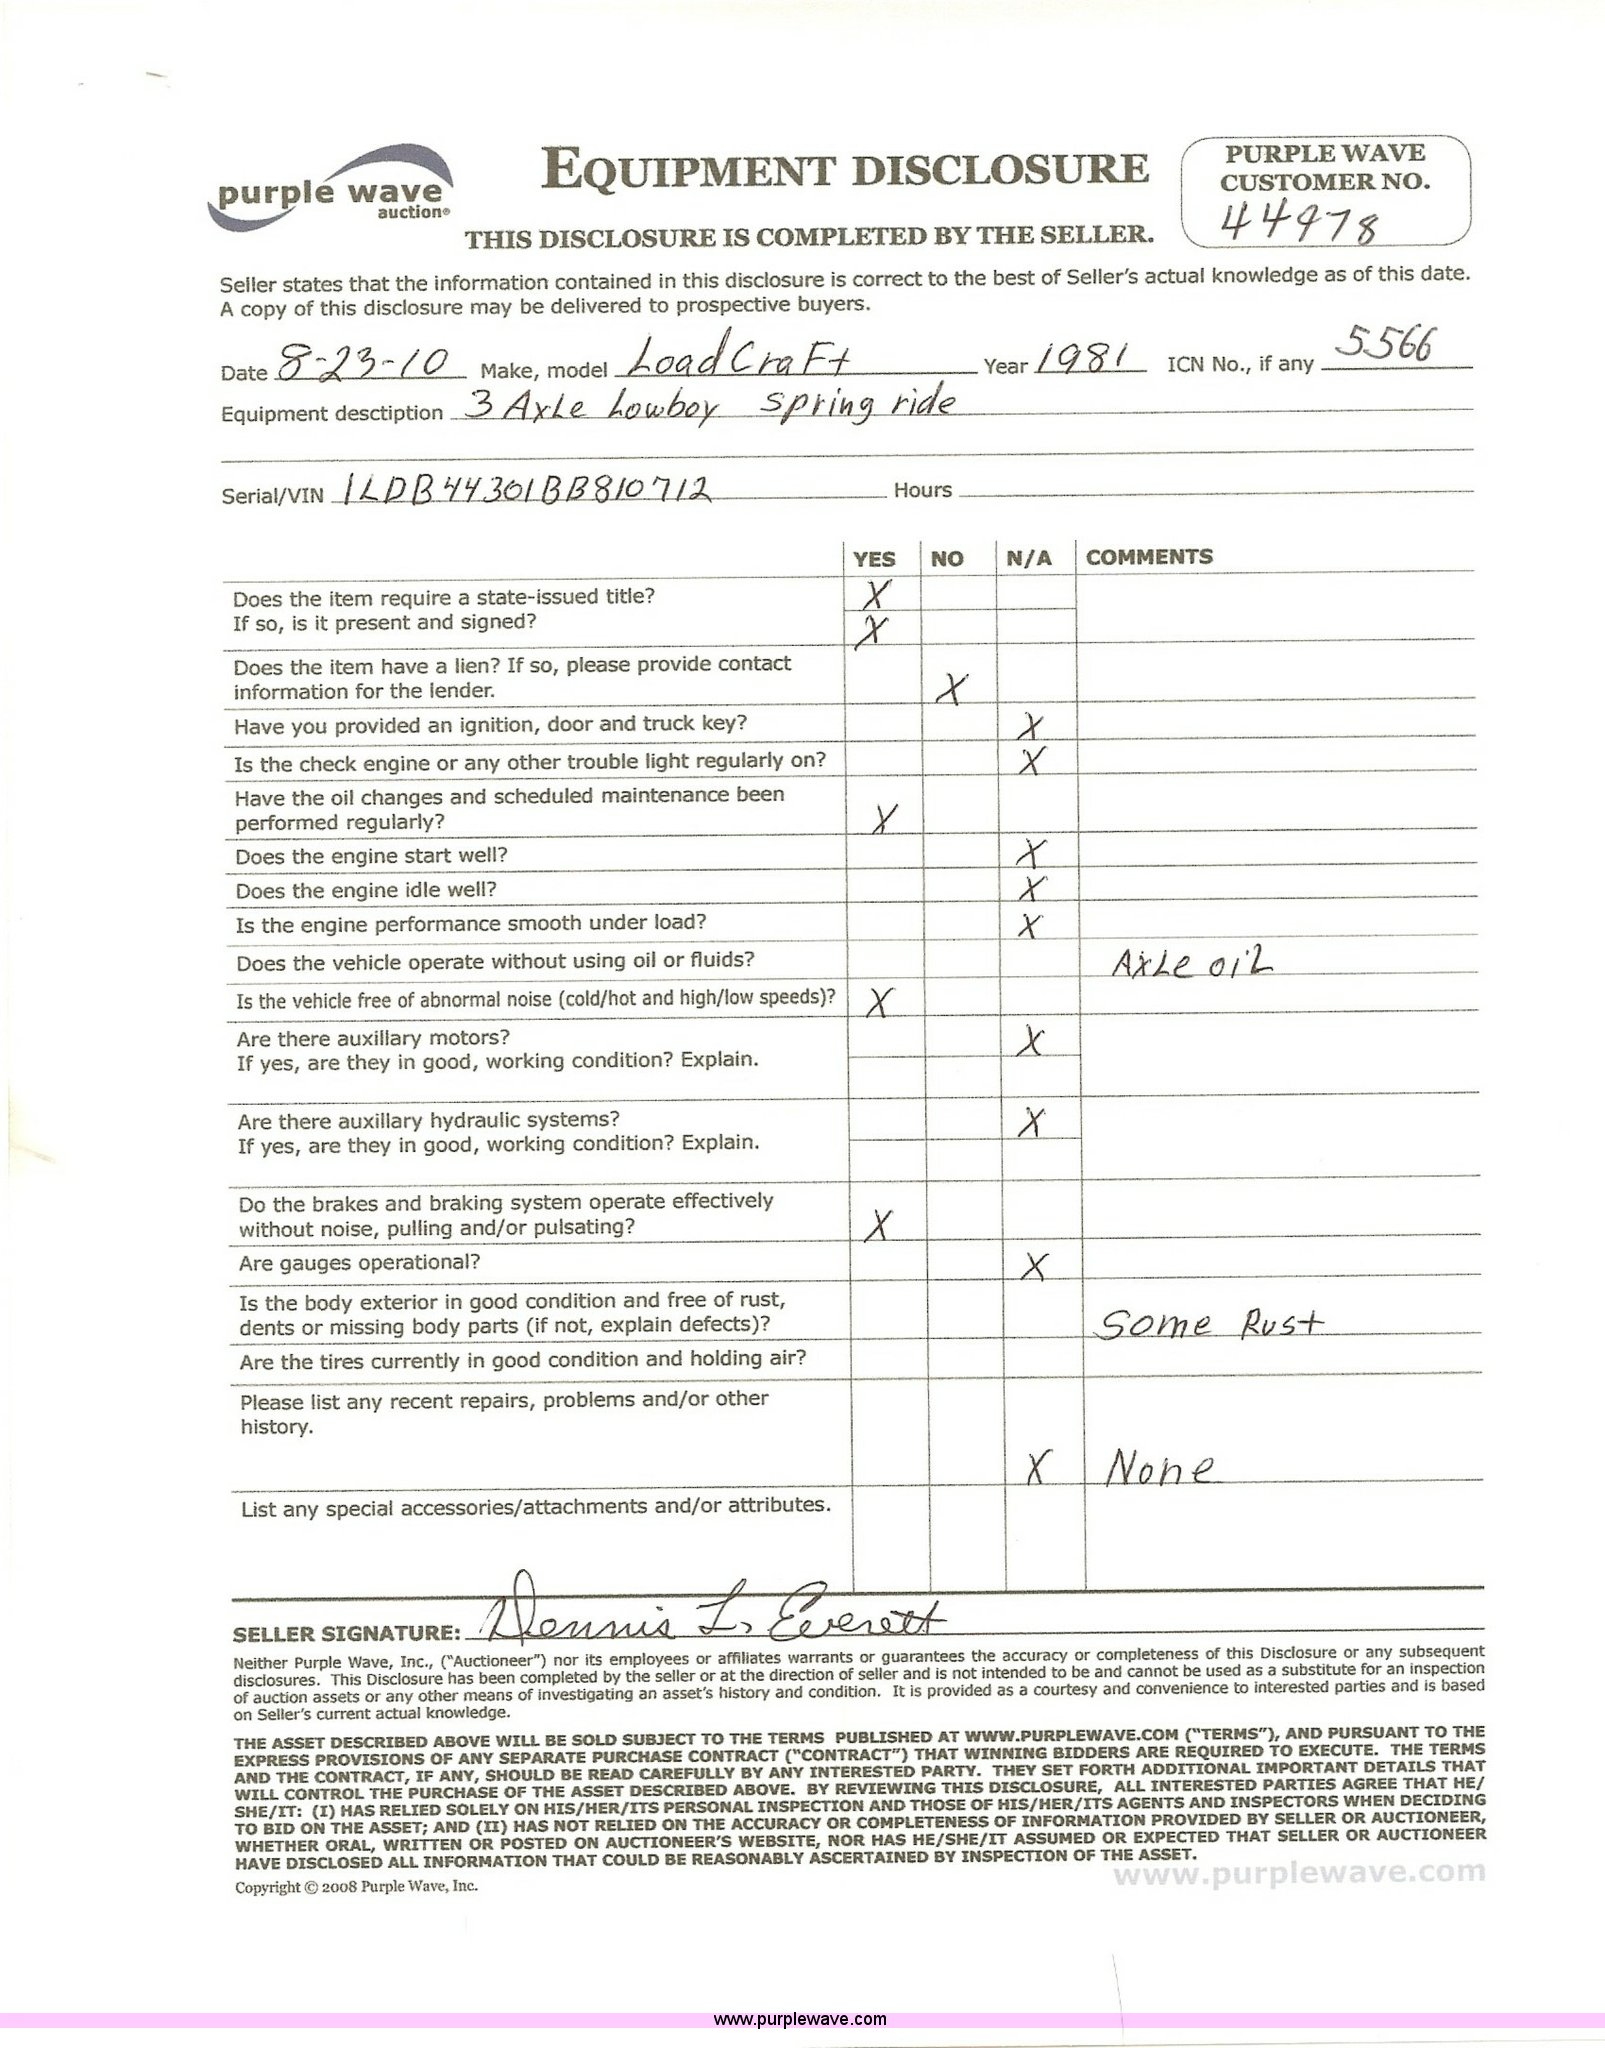 purple wave
auction®
EQUIPMENT DISCLOSURE
THIS DISCLOSURE IS COMPLETED BY THE SELLER.
PURPLE WAVE
CUSTOMER NO.
44978
Seller states that the information contained in this disclosure is correct to the best of Seller's actual knowledge as of this date.
A copy of this disclosure may be delivered to prospective buyers.
Date 8-23-10 Make, model LoadCraFt Year 1981 ICN No., if any 5566
Equipment desctiption 3 AxLe Lowboy spring ride
Serial/VIN 1LDB44301BB810712 Hours
YES NO N/A COMMENTS
Does the item require a state-issued title? X
If so, is it present and signed? X
Does the item have a lien? If so, please provide contact
information for the lender. X
Have you provided an ignition, door and truck key? X
Is the check engine or any other trouble light regularly on? X
Have the oil changes and scheduled maintenance been
performed regularly? X
Does the engine start well? X
Does the engine idle well? X
Is the engine performance smooth under load? X
Does the vehicle operate without using oil or fluids? AxLe oiL
Is the vehicle free of abnormal noise (cold/hot and high/low speeds)? X
Are there auxillary motors? X
If yes, are they in good, working condition? Explain.
Are there auxillary hydraulic systems? X
If yes, are they in good, working condition? Explain.
Do the brakes and braking system operate effectively
without noise, pulling and/or pulsating? X
Are gauges operational? X
Is the body exterior in good condition and free of rust,
dents or missing body parts (if not, explain defects)? Some Rust
Are the tires currently in good condition and holding air?
Please list any recent repairs, problems and/or other
history.
X None
List any special accessories/attachments and/or attributes.
SELLER SIGNATURE: Dennis L. Everett
Neither Purple Wave, Inc., ("Auctioneer") nor its employees or affiliates warrants or guarantees the accuracy or completeness of this Disclosure or any subsequent
disclosures. This Disclosure has been completed by the seller or at the direction of seller and is not intended to be and cannot be used as a substitute for an inspection
of auction assets or any other means of investigating an asset's history and condition. It is provided as a courtesy and convenience to interested parties and is based
on Seller's current actual knowledge.
THE ASSET DESCRIBED ABOVE WILL BE SOLD SUBJECT TO THE TERMS PUBLISHED AT WWW.PURPLEWAVE.COM ("TERMS"), AND PURSUANT TO THE
EXPRESS PROVISIONS OF ANY SEPARATE PURCHASE CONTRACT ("CONTRACT") THAT WINNING BIDDERS ARE REQUIRED TO EXECUTE. THE TERMS
AND THE CONTRACT, IF ANY, SHOULD BE READ CAREFULLY BY ANY INTERESTED PARTY. THEY SET FORTH ADDITIONAL IMPORTANT DETAILS THAT
WILL CONTROL THE PURCHASE OF THE ASSET DESCRIBED ABOVE. BY REVIEWING THIS DISCLOSURE, ALL INTERESTED PARTIES AGREE THAT HE/
SHE/IT: (I) HAS RELIED SOLELY ON HIS/HER/ITS PERSONAL INSPECTION AND THOSE OF HIS/HER/ITS AGENTS AND INSPECTORS WHEN DECIDING
TO BID ON THE ASSET; AND (II) HAS NOT RELIED ON THE ACCURACY OR COMPLETENESS OF INFORMATION PROVIDED BY SELLER OR AUCTIONEER,
WHETHER ORAL, WRITTEN OR POSTED ON AUCTIONEER'S WEBSITE, NOR HAS HE/SHE/IT ASSUMED OR EXPECTED THAT SELLER OR AUCTIONEER
HAVE DISCLOSED ALL INFORMATION THAT COULD BE REASONABLY ASCERTAINED BY INSPECTION OF THE ASSET.
www.purplewave.com
Copyright © 2008 Purple Wave, Inc.
www.purplewave.com